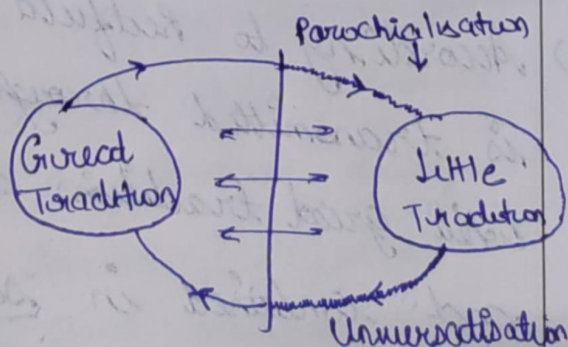 Parochialisation
Great
Tradition
Little
Tradition
Universalisation